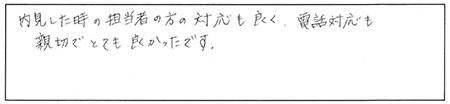 内見した時の担当者の方の対応も良く、電話対応も
親切でとても良かったです。